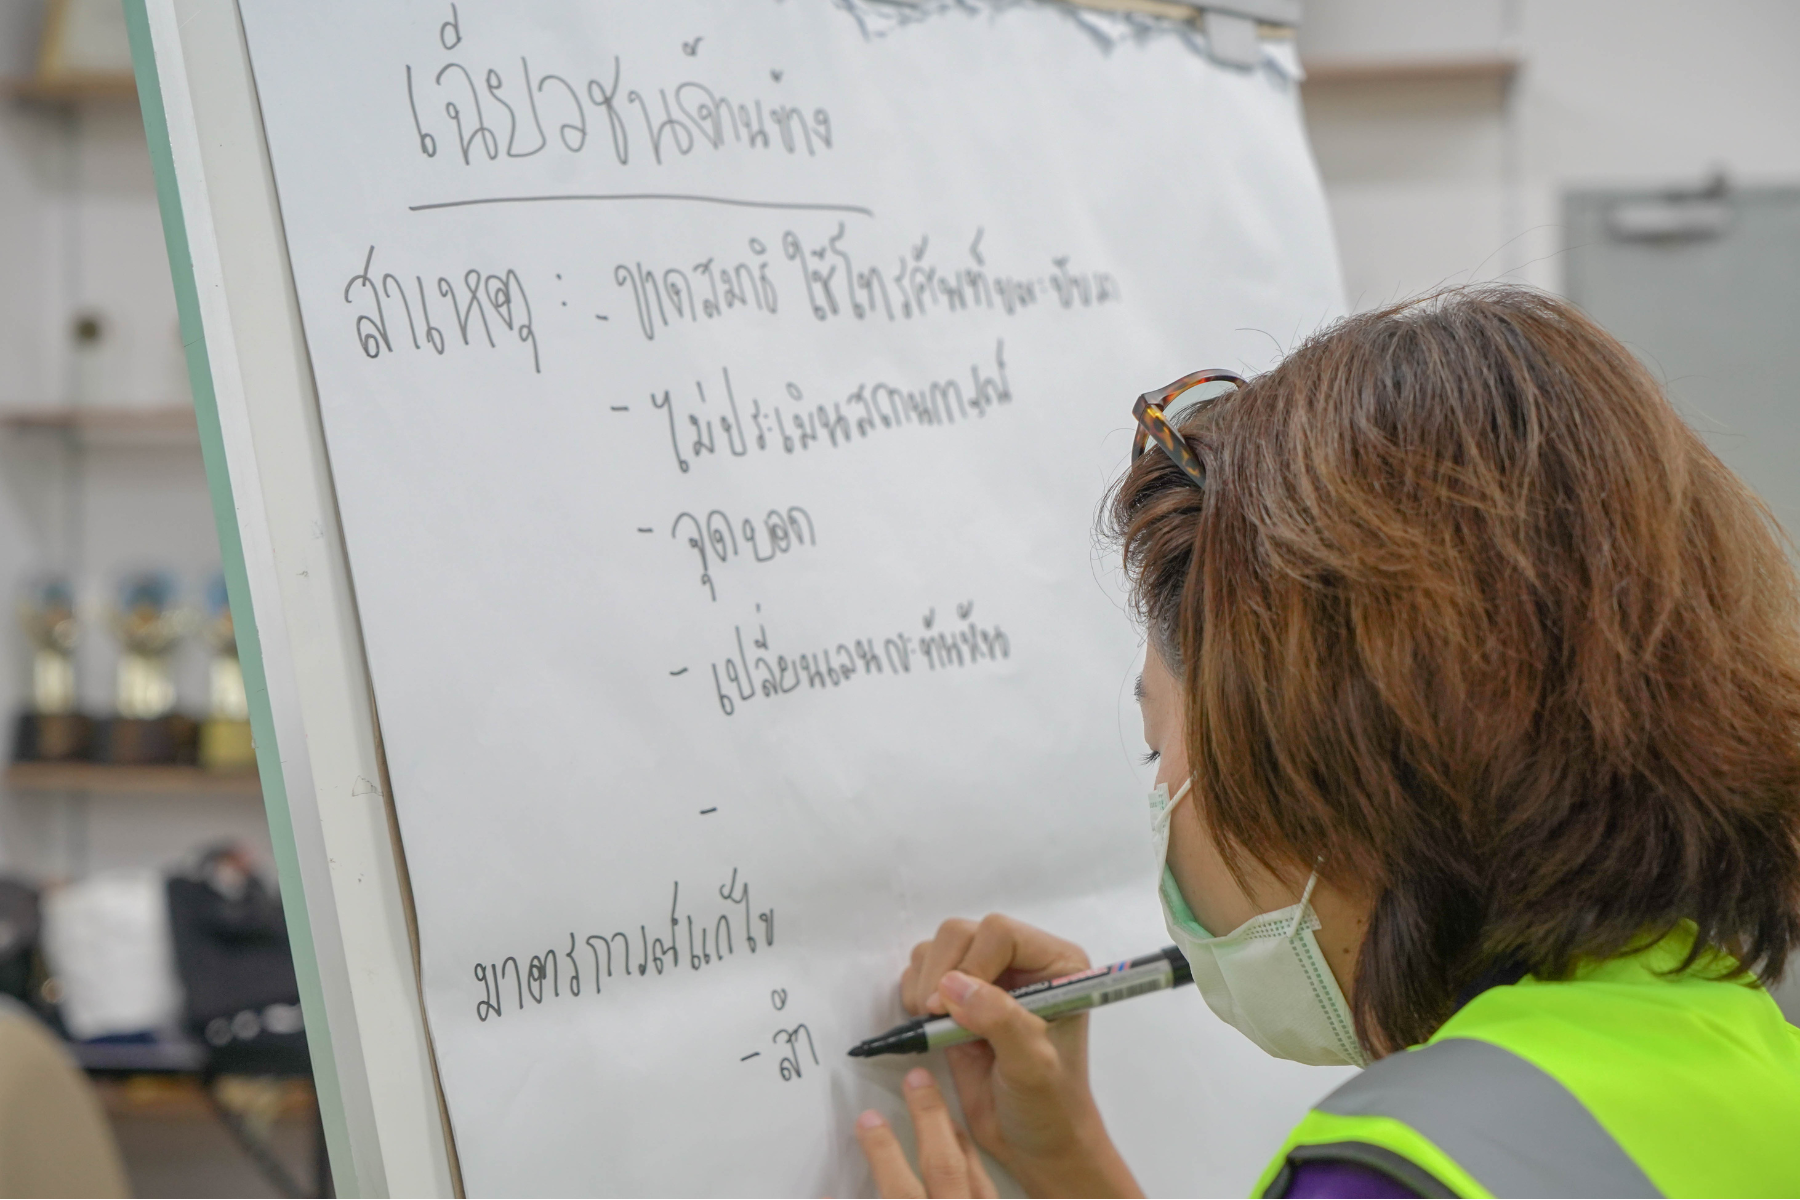 เฉี่ยวชนด้านข้าง
สาเหตุ : - ขาดสมาธิ ใช้โทรศัพท์ขณะขับรถ
- ไม่ประเมินสถานการณ์
- จุดบอด
- เปลี่ยนเลนกะทันหัน
-
มาตรการณ์แก้ไข
- สำ